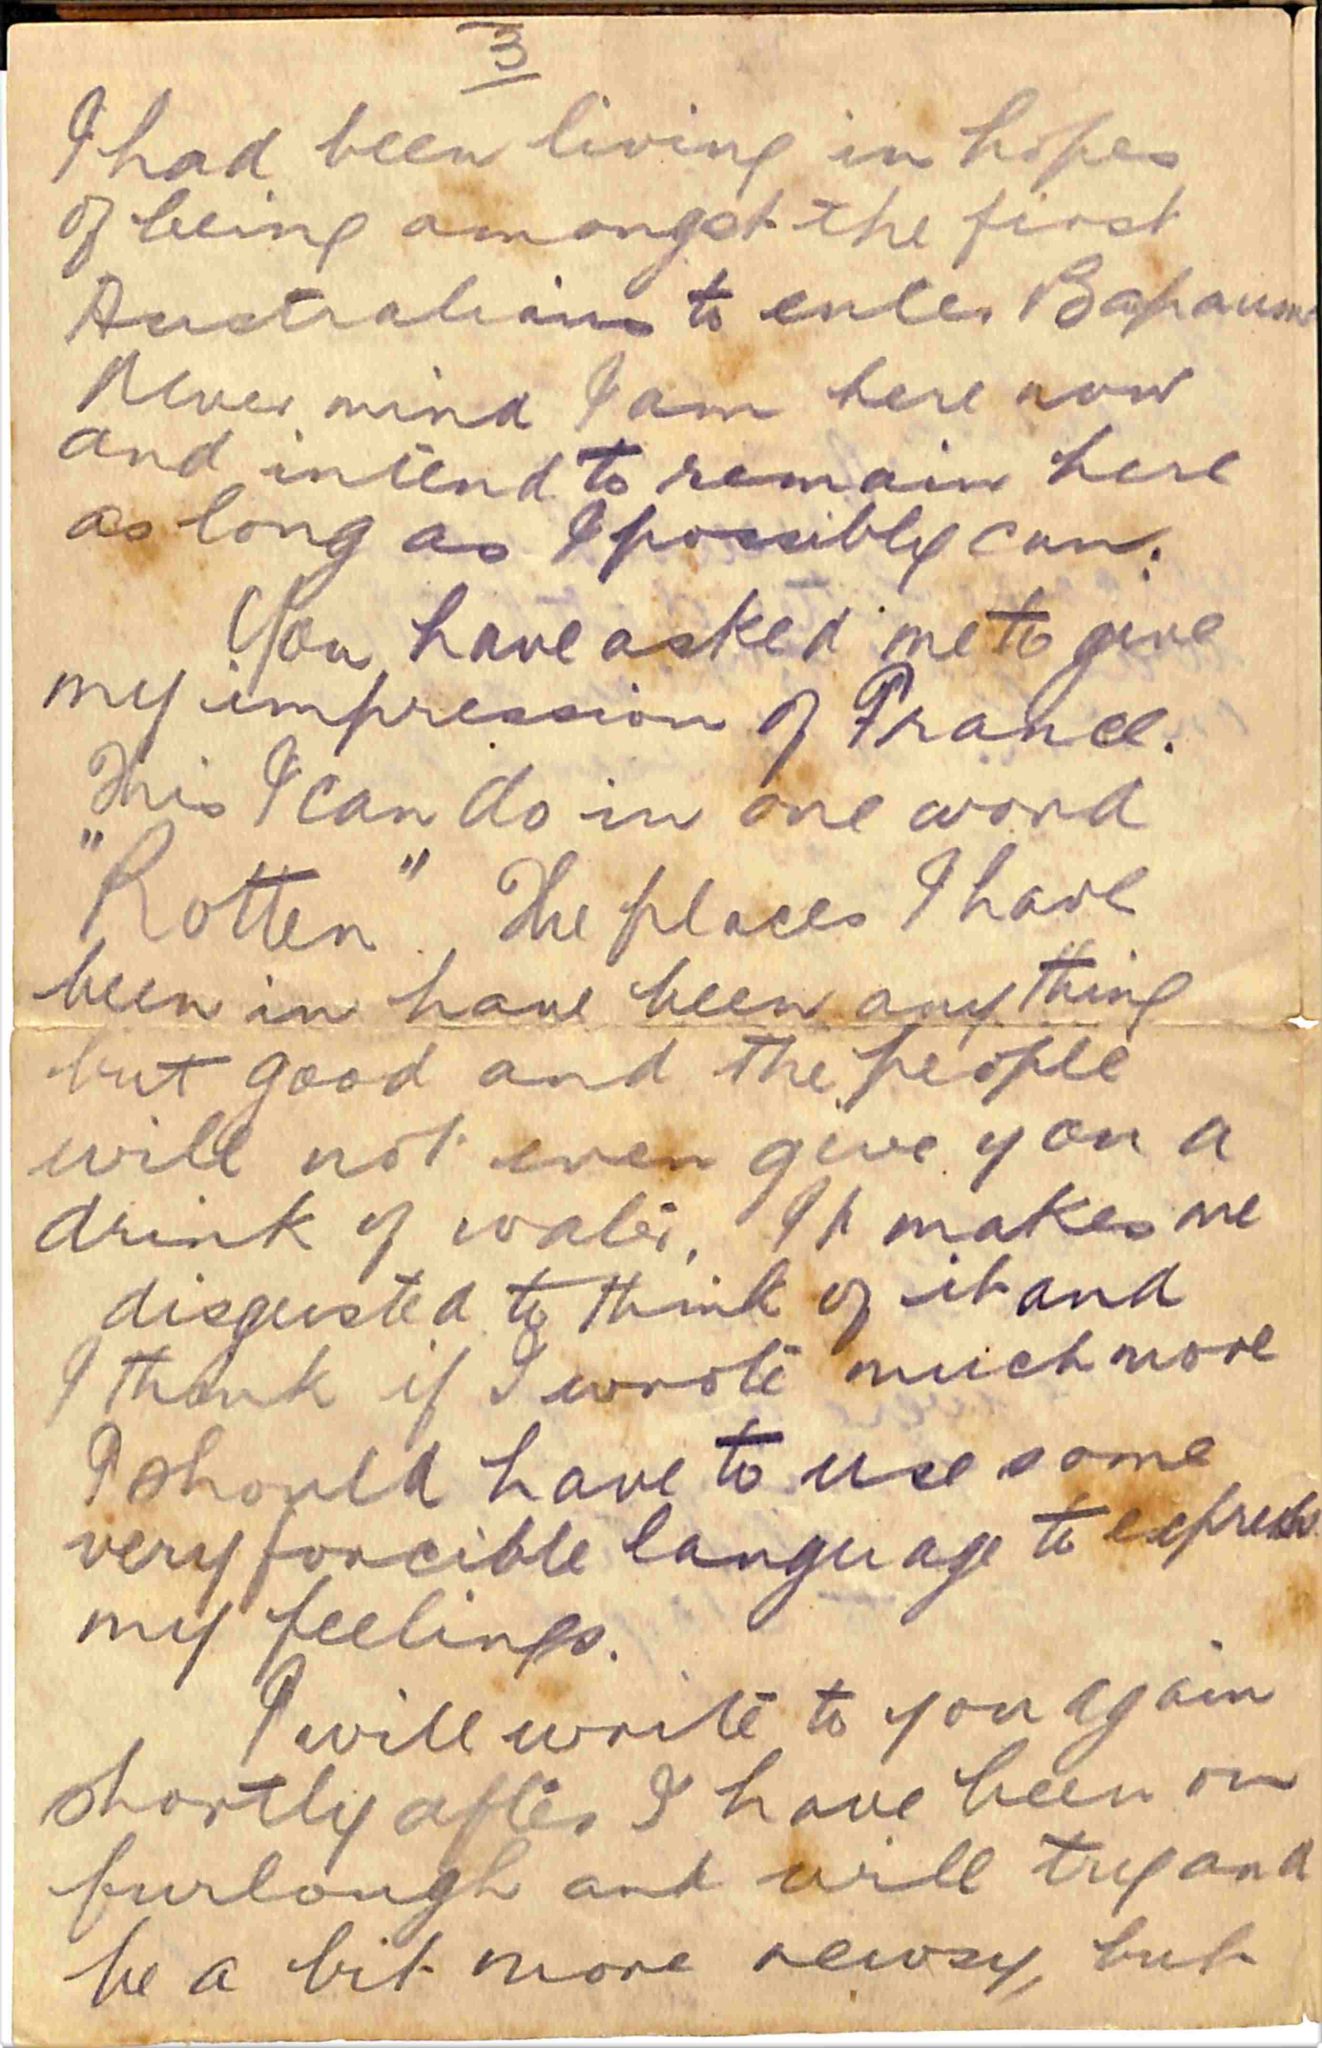 3
I had been living in hopes
of being amongst the first
Australians to enter Bapaume
Never mind I am here now
and intend to remain here
as long as I possibly can.
You have asked me to give
my impression of France.
This I can do in one word
"Rotten". The places I have
been in have been anything
but good and the people
will not even give you a
drink of water. It makes me
disgusted to think of it and
I think if I wrote much more
I should have to use some
very forcible language to express
my feelings.
I will write to you again
shortly after I have been on
furlough and will try and
be a bit more newsy, but